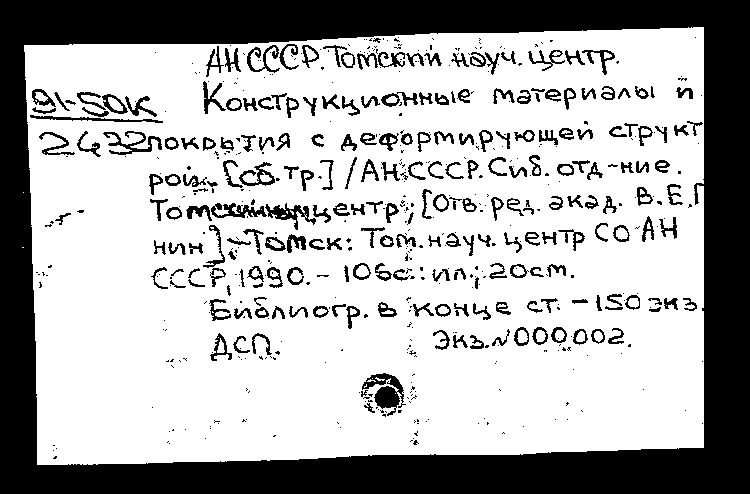 АН СССР. Томский науч. центр.
91-50К Конструкционные материалы и
2432 покрытия с деформирующей структ
рой. [сб. тр.] / АН СССР. Сиб. отд-ние.
Томский науч. центр; [Отв. ред. акад. В.Е.П
нин]. - Томск: Том. науч. центр СО АН
СССР, 1990. - 106с.: ил.; 20см.
Библиогр. в конце ст. - 150 экз.
ДСП. Экз. N 000002.